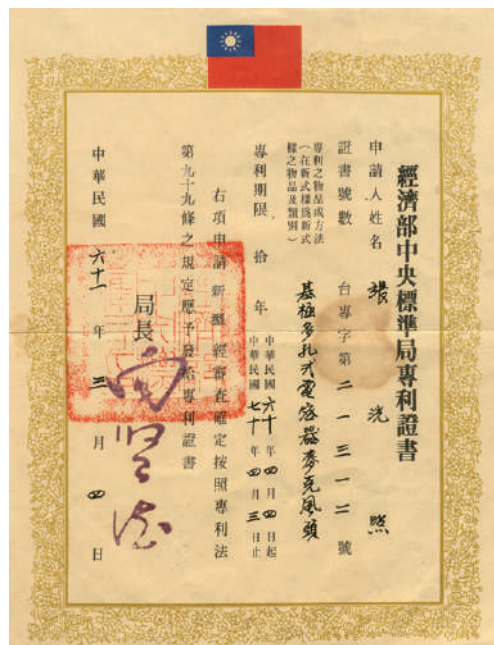 經濟部中央標準局專利證書
申請人姓名 張洸熙
證書號數 台專字第二一三一二號
專利之物品或方法
（在新式樣爲新式
樣之物品及類別）
基極多孔式電容器麥克風頭
專利期限 拾年
中華民國六十年四月四日起
中華民國七十年四月三日止
右項申請新型經審查確定按照專利法
第九十九條之規定應予發給專利證書
局長
中華民國六十一年三月四日